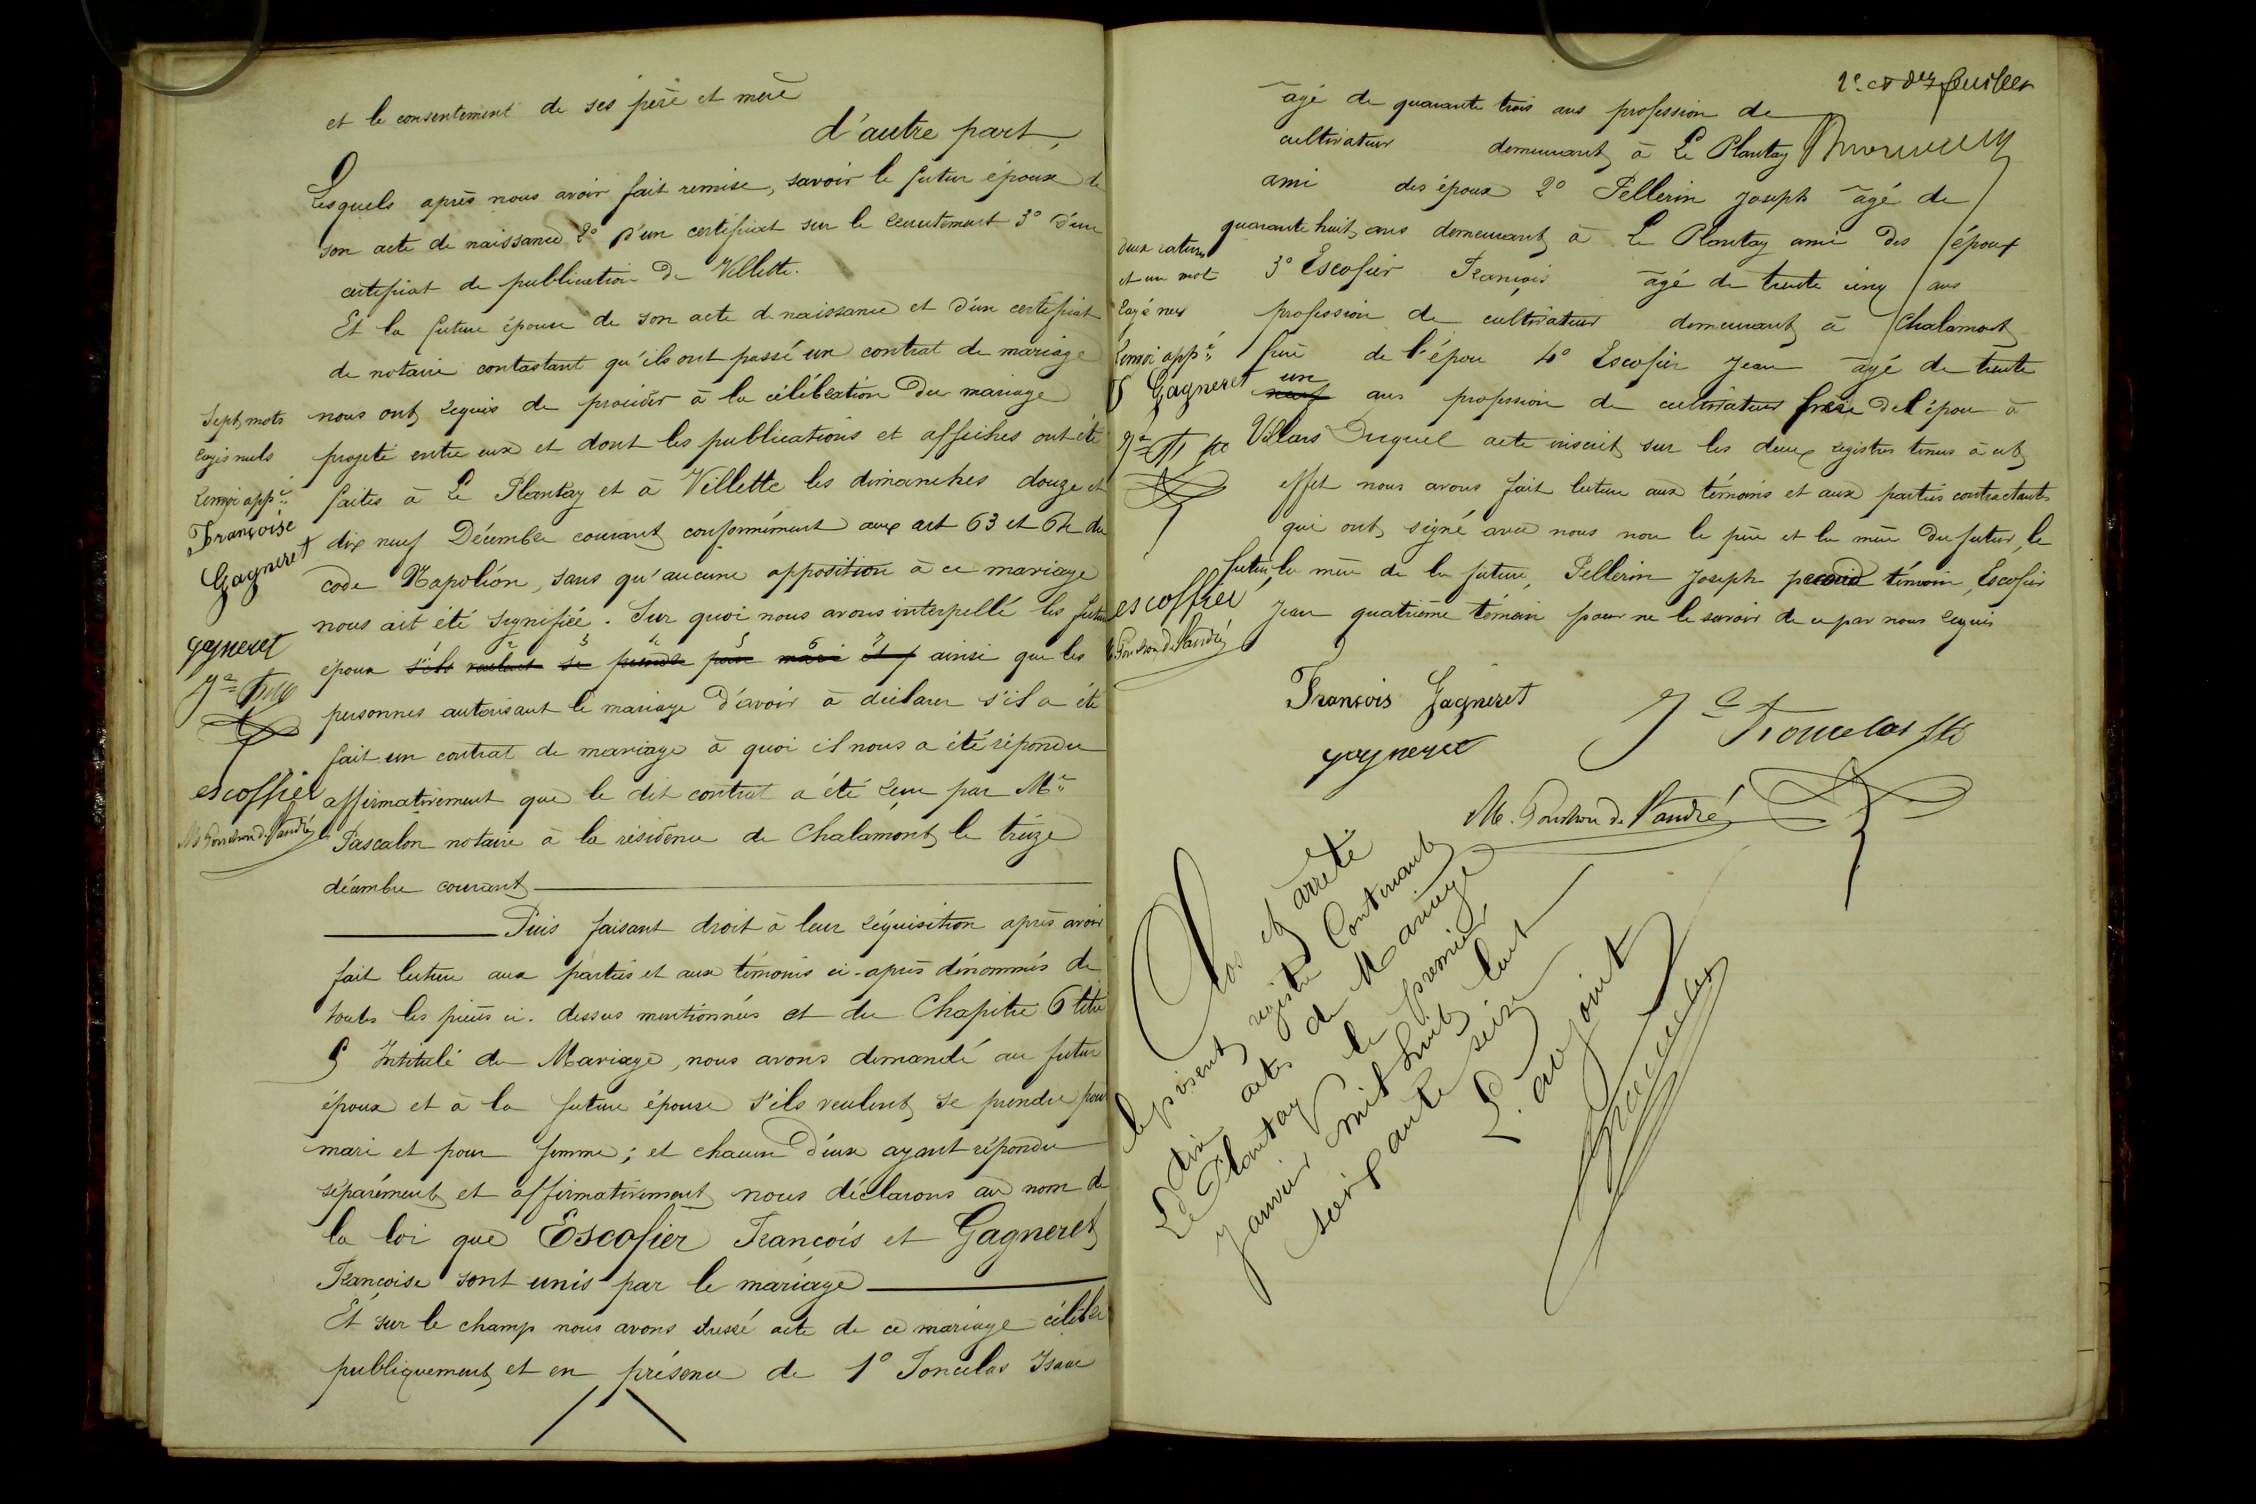 et le consentement de ses père et mère
d'autre part,
Lesquels après nous avoir fait remise, savoir le futur époux de
son acte de naissance 2° d'un certificat sur le recrutement 3° d'un
certificat de publication de Villette.
Et la future épouse de son acte de naissance et d'un certificat
de notaire contastant qu'ils ont passé un contrat de mariage
nous ont requis de procéder à la célébration du mariage
projeté entre eux et dont les publications et affiches ont été
faites à Le Plantay et à Villette les dimanches douze et
dix neuf Décembre courant conformément aux art 63 et 64 du
code Napoléon, sans qu'aucune opposition à ce mariage
nous ait été signifiée. Sur quoi nous avons interpellé les futurs
époux s'ils veulent se prendre pour mari et f ainsi que les
personnes autorisant le mariage d'avoir à déclarer s'il a été
fait un contrat de mariage à quoi il nous a été répondu
affirmativement que le dit contrat a été reçu par Me
Pascalon notaire à la résidence de Chalamont le treize
décembre courant
Puis faisant droit à leur réquisition après avoir
fait lecture aux parties et aux témoins ci-après dénommés de
toutes les pièces ci-dessus mentionnées et du Chapitre 6 titre
5 Intitulé du Mariage, nous avons demandé au futur
époux et à la future épouse s'ils veulent se prendre pour
mari et pour femme; et chacun d'eux ayant répondu
séparément et affirmativement nous déclarons au nom de
la loi que Escofier François et Gagneret
Françoise sont unis par le mariage
Et sur le champ nous avons dressé acte de ce mariage célébré
publiquement et en présence de 1° Toncelas Isaac
Sept mots
rayés nuls
Renvoi appé
Françoise
Gagneret
gagneret
escoffier
M. Ponchon de St André
feuillet
âgé de quarante trois ans profession de
cultivateur demeurant à Le Plantay
ami des époux 2° Pellerin Joseph âgé de
quarante huit ans demeurant à Le Plantay ami des époux
3° Escofier François âgé de trente cinq ans
profession de cultivateur demeurant à Chalamont
frère de l'époux 4° Escofier Jean âgé de trente
un
neuf ans profession de cultivateur frère de l'époux à
Villars Duquel acte inscrit sur les deux registres tenus à cet
effet nous avons fait lecture aux témoins et aux parties contractantes
qui ont signé avec nous non le père et la mère du futur, le
futur, la mère de la future, Pellerin Joseph second témoin, Escofier
Jean quatrième témoin pour ne le savoir de ce par nous requis
deux ratures
et un mot
rayé nul
Renvoi appé
F Gagneret
escoffier
M. Ponchon de St André
François Gagneret
gagneret
M. Ponchon de St André
Clos et arrêté
le présent registre Contenant
dix actes de Mariage
Le Plantay le premier
Janvier mil huit cent
soixante seize
L'adjoint